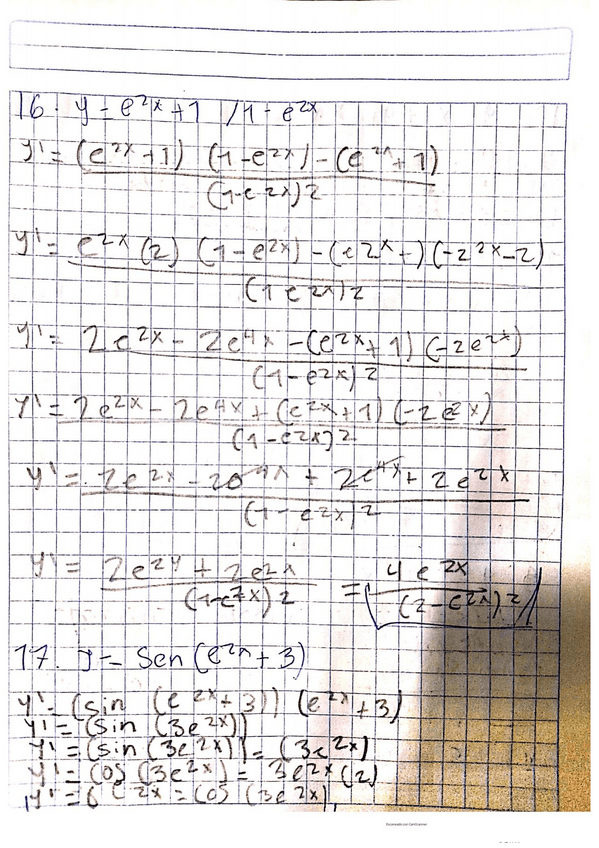 16. y = e^2x + 1 / 1 - e^2x
y' = (e^2x + 1) (1 - e^2x) - (e^2x + 1)
(1 - e^2x)^2
y' = e^2x (2) (1 - e^2x) - (e^2x + ) (-2^2x - 2)
(1 e^2x)^2
y' = 2e^2x - 2e^4x - (e^2x + 1) (-2e^2x)
(1 - e^2x)^2
y' = 2e^2x - 2e^4x + (e^2x + 1) (-2e^2x)
(1 - e^2x)^2
y' = 2e^2x - 2e^4x + 2e^4x + 2e^2x
(1 - e^2x)^2
y' = 2e^2x + 2e^2x = 4e^2x
(1 - e^2x)^2 (2 - e^2x)^2
17. y = Sen (e^2x + 3)
y' = (sin (e^2x + 3)) (e^2x + 3)
y' = (sin (3e^2x))
y' = (sin (3e^2x)) = (3e^2x)
y' = cos (3e^2x) = 3e^2x (2)
y' = 6 e^2x = cos (3e^2x)
Escaneado con CamScanner